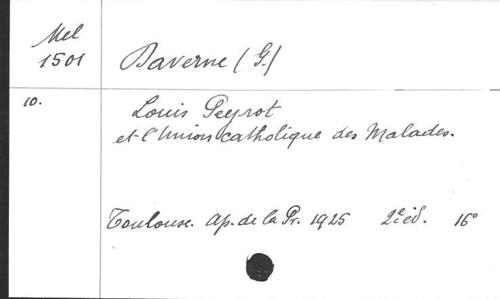 Mel
1501
Daverne (G.)
10.
Louis Peyrot
et l'Union catholique des Malades.
Toulouse. Ap. de la Pr. 1925 2e éd. 16°